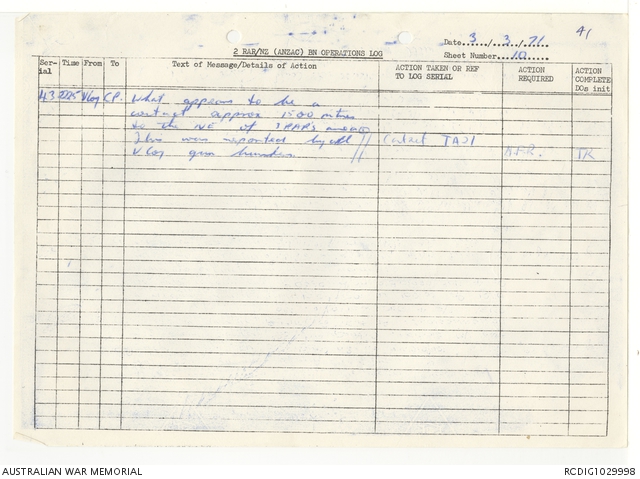 41
2 RAR/NZ (ANZAC) BN OPERATIONS LOG
Date 3 / 3 / 71
Sheet Number 10
Ser-ial Time From To Text of Message/Details of Action ACTION TAKEN OR REF TO LOG SERIAL ACTION REQUIRED ACTION COMPLETE DOs init
43 2225 V Coy CP. What appears to be a
contact approx 1500 metres
to the NE of 3 RAR's
This was reported by call // Contact TAOI
V Coy gun //
TR
AUSTRALIAN WAR MEMORIAL
RCDIG1029998